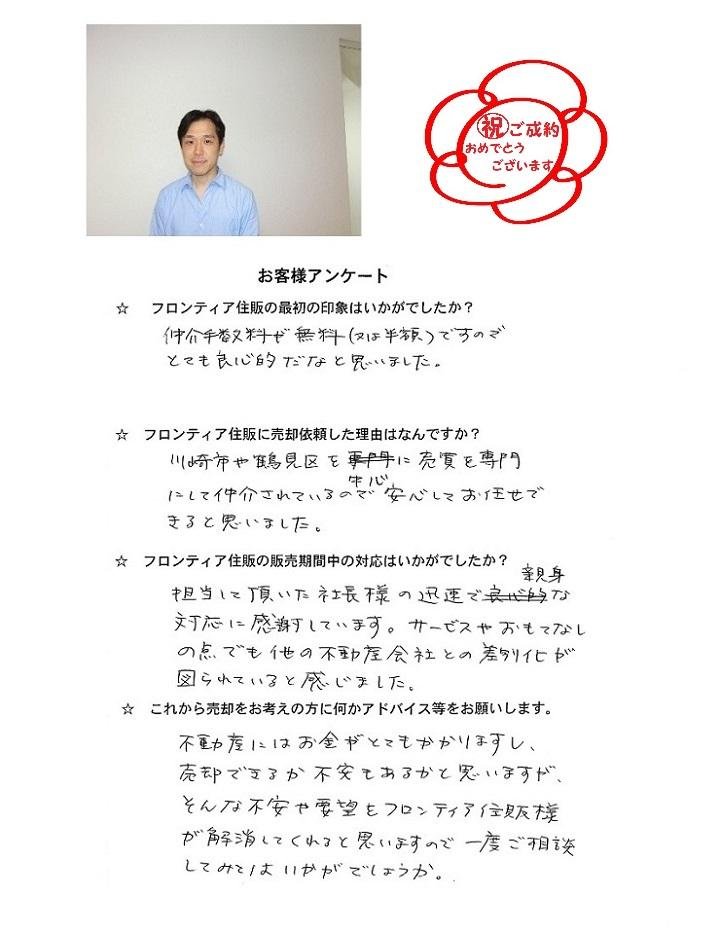 ㊗ご成約
おめでとう
ございます
お客様アンケート
☆ フロンティア住販の最初の印象はいかがでしたか？
仲介手数料が無料(又は半額)ですので
とても良心的だなと思いました。
☆ フロンティア住販に売却依頼した理由はなんですか？
川崎市や鶴見区を専門に売買を専門
中心
にして仲介されているので安心してお任せで
きると思いました。
☆ フロンティア住販の販売期間中の対応はいかがでしたか？
親身
担当して頂いた社長様の迅速で良心的な
対応に感謝しています。サービスやおもてなし
の点でも他の不動産会社との差別化が
図られていると感じました。
☆ これから売却をお考えの方に何かアドバイス等をお願いします。
不動産にはお金がとてもかかりますし、
売却できるか不安もあるかと思いますが、
そんな不安や要望をフロンティア住販様
が解消してくれると思いますので一度ご相談
してみてはいかがでしょうか。